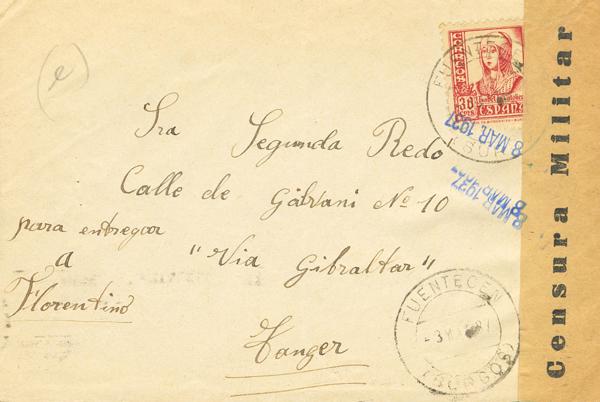 Sra Segunda Redo
Calle de Galvani Nº 10
para entregar
a
Florentino
"Via Gibraltar"
Tanger
CORREOS
30
CTS
ESPAÑA
8 MAR. 1937
8 MAR. 1937
FUENTECEN
(BURGOS)
Censura Militar
e